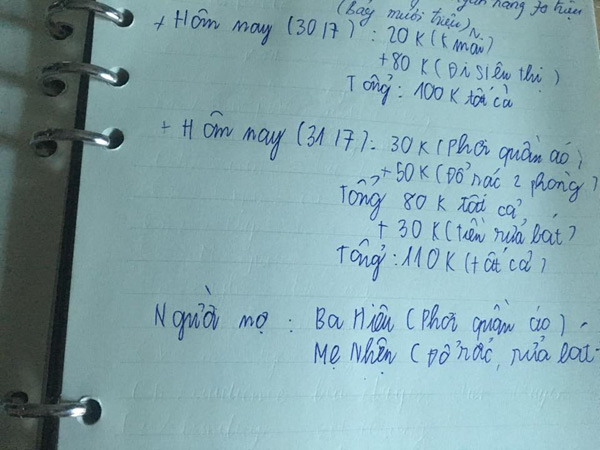 hàng 70 triệu
(Bảy mươi triệu)
+ Hôm nay (30/7): 20K (K mãi)
+80 K (Đi siêu thị)
Tổng: 100 K tất cả
+ Hôm nay (31/7): 30 K (Phơi quần áo)
+50 K (Đổ rác 2 phòng)
Tổng 80 K tất cả
+ 30 K (tiền rửa bát)
Tổng: 110 K (tất cả)
Người nợ : Ba Hiệu (Phơi quần áo).
Mẹ Nhện (Đổ rác, rửa bát